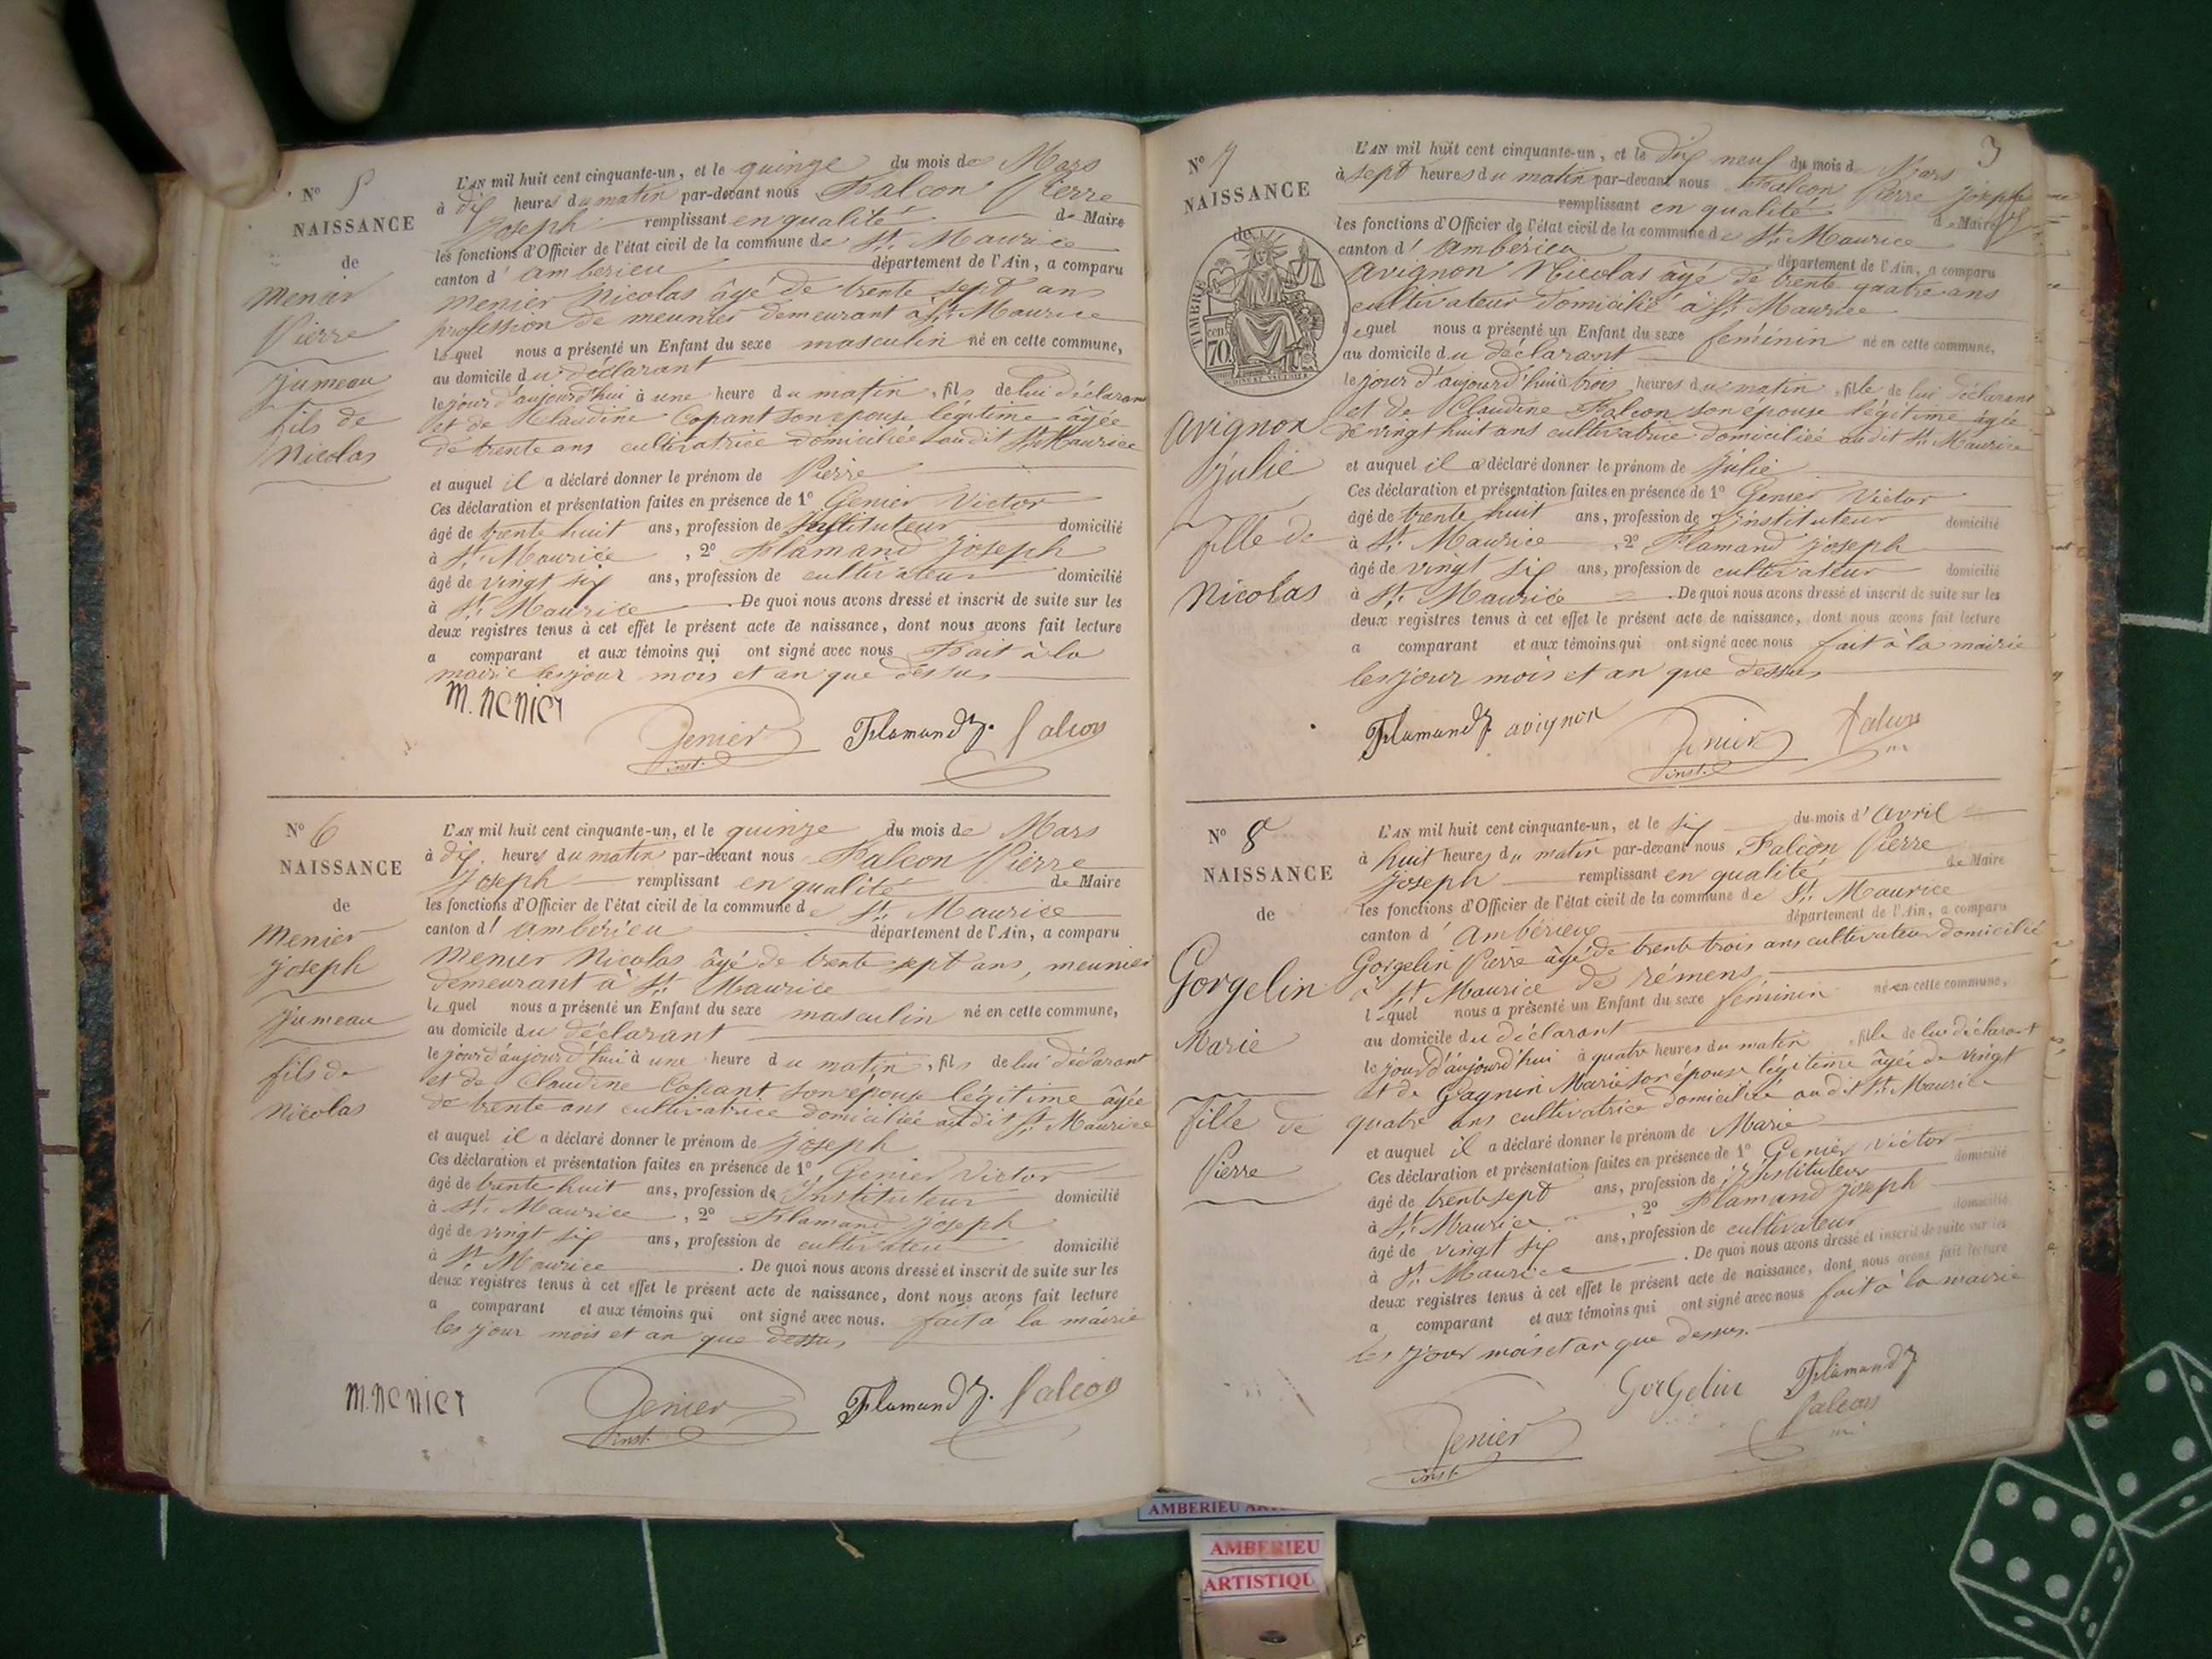 N° 5
NAISSANCE
de
Menier
Pierre
jumeau
fils de
Nicolas
L'AN mil huit cent cinquante-un, et le quinze du mois de Mars
à dix heures du matin par-devant nous Falcon Pierre
Joseph remplissant en qualité de Maire
les fonctions d'Officier de l'état civil de la commune de St. Maurice
canton d'ambérieu département de l'Ain, a comparu
Menier Nicolas âgé de trente sept ans
profession de meunier demeurant à St. Maurice
lequel nous a présenté un Enfant du sexe masculin né en cette commune,
au domicile du déclarant
le jour d'aujourd'hui à une heure du matin, fils de lui déclarant
et de Claudine Copant son épouse légitime âgée
de trente ans cultivatrice domiciliée audit St. Maurice
et auquel il a déclaré donner le prénom de Pierre
Ces déclaration et présentation faites en présence de 1° Genier Victor
âgé de trente huit ans, profession de Instituteur domicilié
à St. Maurice, 2° Flamand Joseph
âgé de vingt six ans, profession de cultivateur domicilié
à St. Maurice. De quoi nous avons dressé et inscrit de suite sur les
deux registres tenus à cet effet le présent acte de naissance, dont nous avons fait lecture
a comparant et aux témoins qui ont signé avec nous Fait à la
mairie les jour mois et an que dessus
M. Menier Genier inst. Flamand J. falcon
N° 6
NAISSANCE
de
Menier
Joseph
jumeau
fils de
Nicolas
L'AN mil huit cent cinquante-un, et le quinze du mois de Mars
à dix heures du matin par-devant nous Falcon Pierre
Joseph remplissant en qualité de Maire
les fonctions d'Officier de l'état civil de la commune de St. Maurice
canton d'ambérieu département de l'Ain, a comparu
Menier Nicolas âgé de trente sept ans, meunier
demeurant à St. Maurice
lequel nous a présenté un Enfant du sexe masculin né en cette commune,
au domicile du déclarant
le jour d'aujourd'hui à une heure du matin, fils de lui déclarant
et de Claudine Copant son épouse légitime âgée
de trente ans cultivatrice domiciliée audit St. Maurice
et auquel il a déclaré donner le prénom de Joseph
Ces déclaration et présentation faites en présence de 1° Genier Victor
âgé de trente huit ans, profession de Instituteur domicilié
à St. Maurice, 2° Flamand Joseph
âgé de vingt six ans, profession de cultivateur domicilié
à St. Maurice. De quoi nous avons dressé et inscrit de suite sur les
deux registres tenus à cet effet le présent acte de naissance, dont nous avons fait lecture
a comparant et aux témoins qui ont signé avec nous. fait à la mairie
les jour mois et an que dessus
M. Menier Genier inst. Flamand J. falcon
3
N° 7
NAISSANCE
de
TIMBRE
70 cen
avignon
Julie
fille de
Nicolas
L'AN mil huit cent cinquante-un, et le dix neuf du mois de Mars
à sept heures du matin par-devant nous Falcon Pierre Joseph
remplissant en qualité de Maire
les fonctions d'Officier de l'état civil de la commune de St. Maurice
canton d'ambérieu département de l'Ain, a comparu
avignon Nicolas âgé de trente quatre ans
cultivateur domicilié à St. Maurice
lequel nous a présenté un Enfant du sexe féminin né en cette commune,
au domicile du déclarant
le jour d'aujourd'hui à trois heures du matin, fille de lui déclarant
et de Claudine Falcon son épouse légitime âgée
de vingt huit ans cultivatrice domiciliée audit St. Maurice
et auquel il a déclaré donner le prénom de Julie
Ces déclaration et présentation faites en présence de 1° Genier Victor
âgé de trente huit ans, profession de instituteur domicilié
à St. Maurice, 2° Flamand Joseph
âgé de vingt six ans, profession de cultivateur domicilié
à St. Maurice. De quoi nous avons dressé et inscrit de suite sur les
deux registres tenus à cet effet le présent acte de naissance, dont nous avons fait lecture
a comparant et aux témoins qui ont signé avec nous fait à la mairie
les jour mois et an que dessus
Flamand J. avignon Genier inst. falcon
N° 8
NAISSANCE
de
Gorgelin
Marie
fille de
Pierre
L'AN mil huit cent cinquante-un, et le six du mois d'avril
à huit heures du matin par-devant nous Falcon Pierre
Joseph remplissant en qualité de Maire
les fonctions d'Officier de l'état civil de la commune de St. Maurice
canton d'Ambérieu département de l'Ain, a comparu
Gorgelin Pierre âgé de trente trois ans cultivateur domicilié
à St. Maurice de rémens
lequel nous a présenté un Enfant du sexe féminin né en cette commune,
au domicile du déclarant
le jour d'aujourd'hui à quatre heures du matin, fille de lui déclarant
et de Gagnin Marie son épouse légitime âgée de vingt
quatre ans cultivatrice domiciliée audit St. Maurice
et auquel il a déclaré donner le prénom de Marie
Ces déclaration et présentation faites en présence de 1° Genier Victor
âgé de trente sept ans, profession de Instituteur domicilié
à St. Maurice, 2° Flamand Joseph
âgé de vingt six ans, profession de cultivateur domicilié
à St. Maurice. De quoi nous avons dressé et inscrit de suite sur les
deux registres tenus à cet effet le présent acte de naissance, dont nous avons fait lecture
a comparant et aux témoins qui ont signé avec nous fait à la mairie
les jour mois et an que dessus.
Gorgelin Flamand J
Genier inst. falcon
AMBERIEU
AMBERIEU
ARTISTIQU